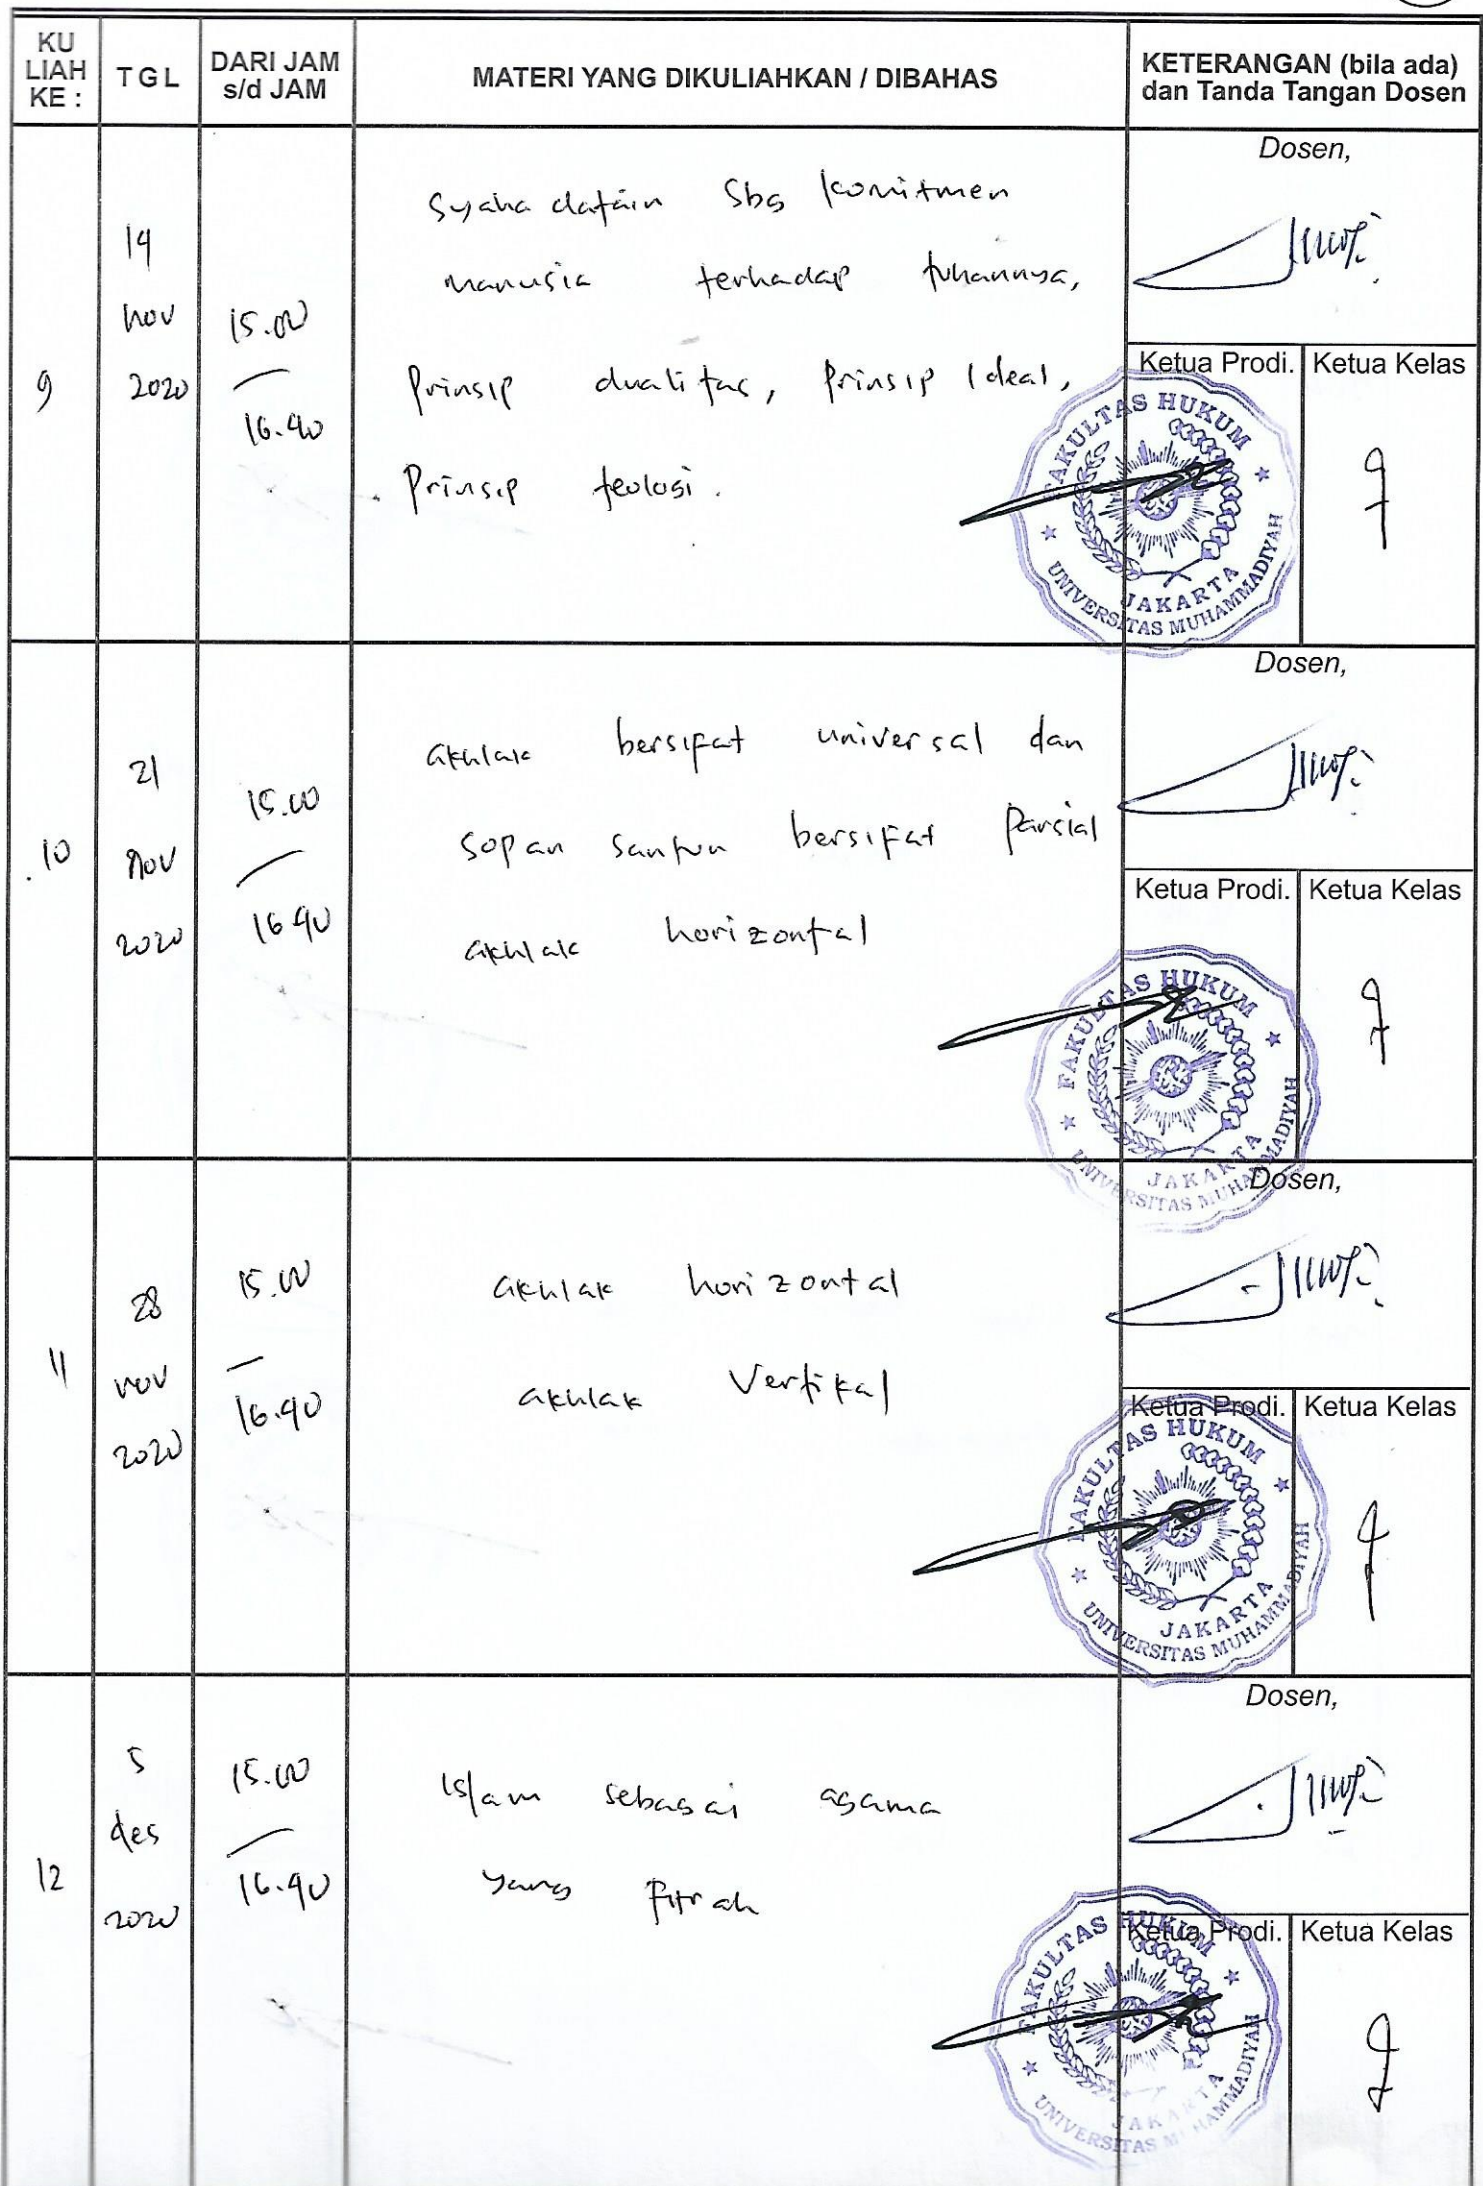 KU LIAH KE :
TGL
DARI JAM s/d JAM
MATERI YANG DIKULIAHKAN / DIBAHAS
KETERANGAN (bila ada) dan Tanda Tangan Dosen
9
14
nov
2020
15.00
16.40
Syahadatain Sbg komitmen
manusia terhadap tuhannya,
Prinsip dualitas, Prinsip Ideal,
Prinsip teologi.
Dosen,
Ketua Prodi.
Ketua Kelas
FAKULTAS HUKUM
JAKARTA
UNIVERSITAS MUHAMMADIYAH
10
21
nov
2020
15.00
16.40
akhlak bersifat universal dan
sopan santun bersifat Parsial
akhlak horizontal
Dosen,
Ketua Prodi.
Ketua Kelas
FAKULTAS HUKUM
JAKARTA
UNIVERSITAS MUHAMMADIYAH
11
28
nov
2020
15.00
16.40
akhlak horizontal
akhlak Vertikal
Dosen,
Ketua Prodi.
Ketua Kelas
FAKULTAS HUKUM
JAKARTA
UNIVERSITAS MUHAMMADIYAH
12
5
des
2020
15.00
16.40
Islam sebagai agama
yang Fitrah
Dosen,
Ketua Prodi.
Ketua Kelas
FAKULTAS HUKUM
JAKARTA
UNIVERSITAS MUHAMMADIYAH